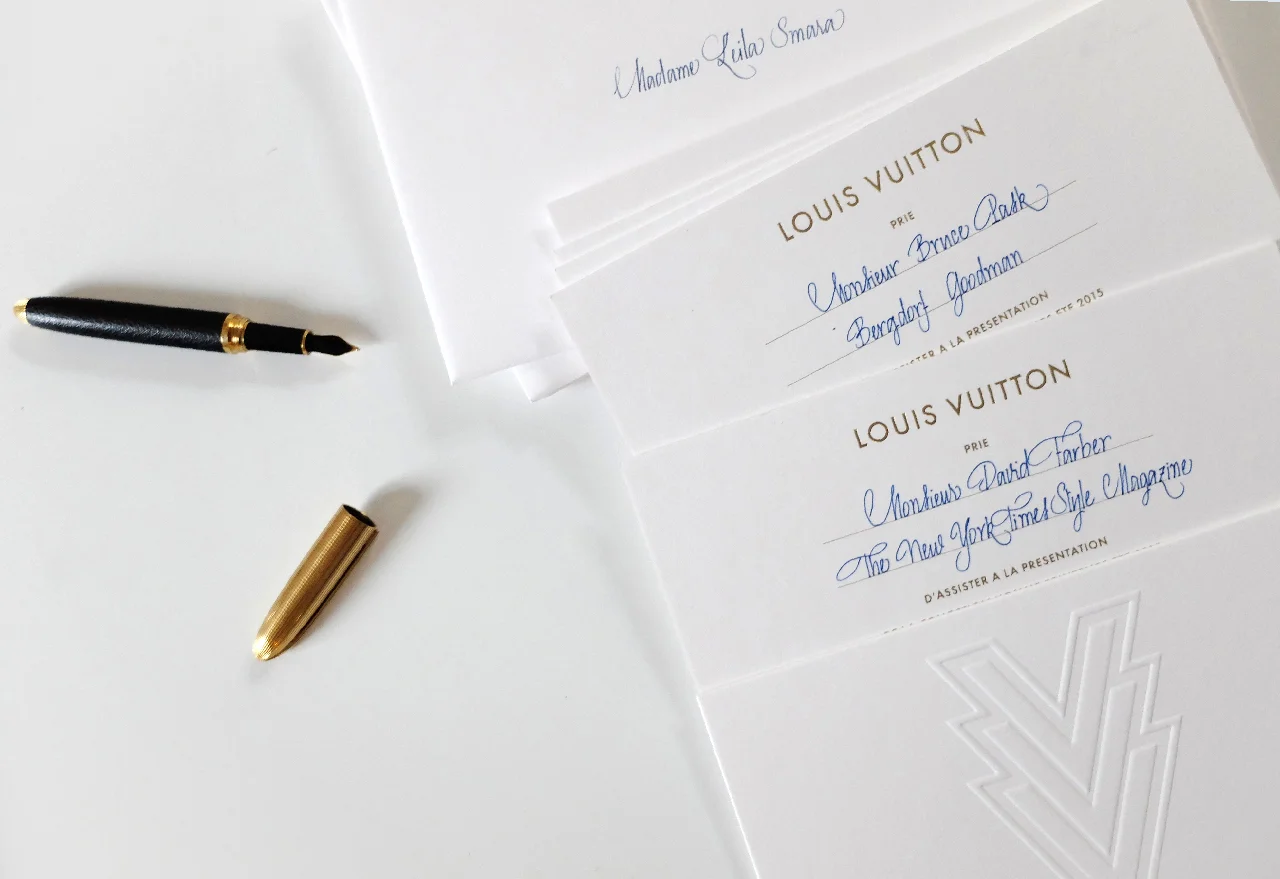 Madame Leila Smara
LOUIS VUITTON
PRIE
Monsieur Bruce Pask
Bergdorf Goodman
A LA PRESENTATION
ETE 2015
LOUIS VUITTON
PRIE
Monsieur David Farber
The New York Times Style Magazine
D'ASSISTER A LA PRESENTATION